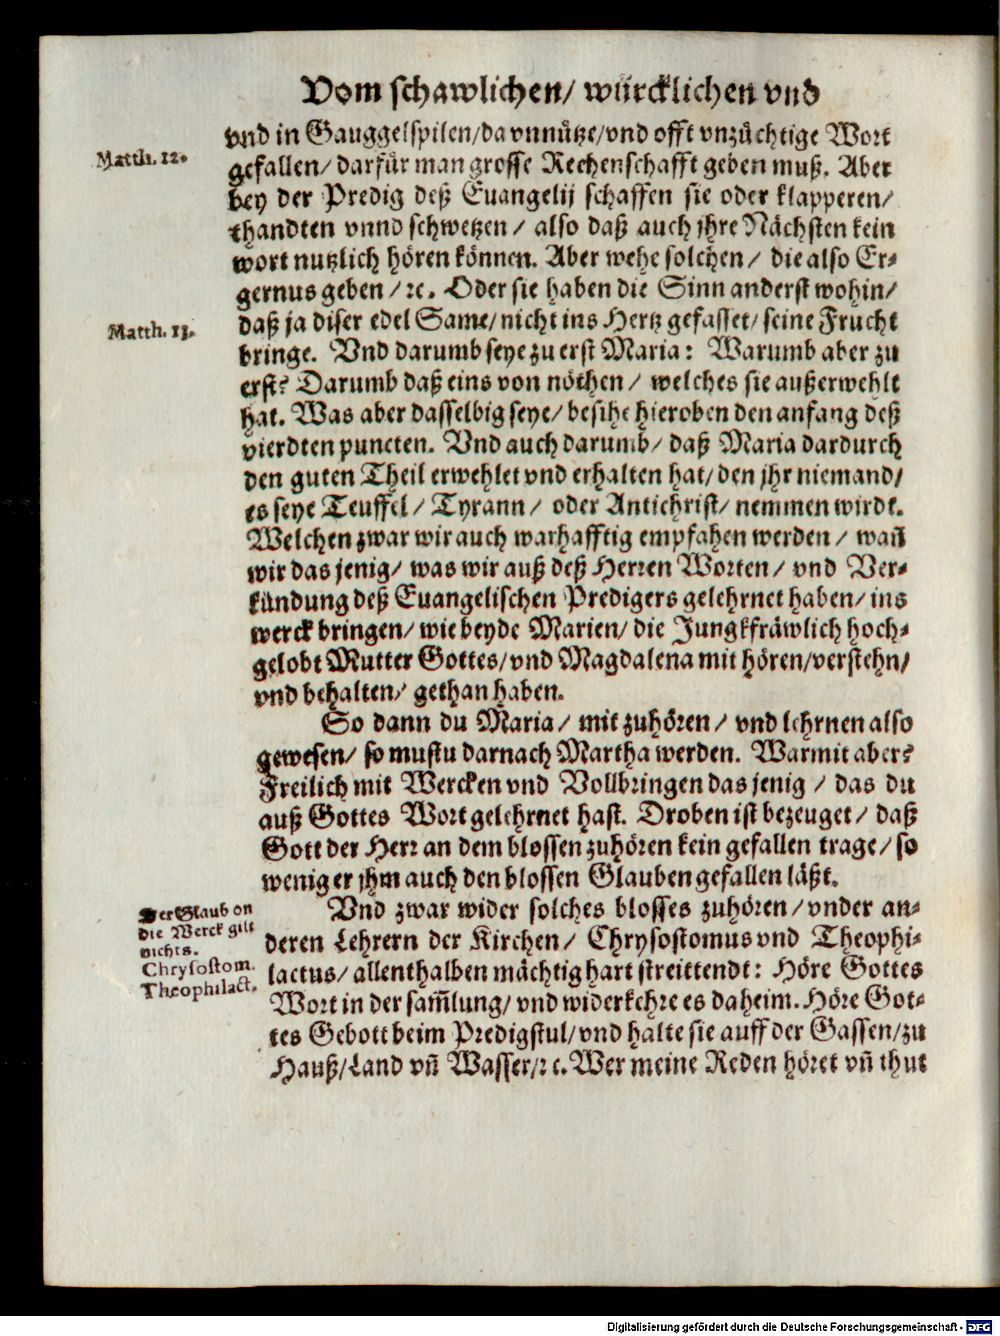 Vom schawlichen/ würcklichen vnd
vnd in Gauggelspilen/ da vnnütze/ vnd offt vnzüchtige Wort
Matth. 12.
gefallen/ darfür man grosse Rechenschafft geben muß. Aber
bey der Predig deß Euangelij schaffen sie oder klapperen/
thandten vnnd schwetzen/ also daß auch jhre Nächsten kein
wort nutzlich hören können. Aber wehe solchen/ die also Er-
gernus geben/ ꝛc. Oder sie haben die Sinn anderst wohin/
Matth. 13.
daß ja diser edel Same/ nicht ins Hertz gefasset/ seine Frucht
bringe. Vnd darumb seye zu erst Maria: Warumb aber zu
erst? Darumb daß eins von nöthen/ welches sie außerwehlt
hat. Was aber dasselbig seye/ besihe hieroben den anfang deß
vierdten puncten. Vnd auch darumb/ daß Maria dardurch
den guten Theil erwehlet vnd erhalten hat/ den jhr niemand/
es seye Teuffel/ Tyrann/ oder Antichrist/ nemmen wirdt.
Welchen zwar wir auch warhafftig empfahen werden/ wañ
wir das jenig/ was wir auß deß Herren Worten/ vnd Ver-
kündung deß Euangelischen Predigers gelehrnet haben/ ins
werck bringen/ wie beyde Marien/ die Jungkfräwlich hoch-
gelobt Mutter Gottes/ vnd Magdalena mit hören/ verstehn/
vnd behalten/ gethan haben.
So dann du Maria/ mit zuhören/ vnd lehrnen also
gewesen/ so mustu darnach Martha werden. Warmit aber?
Freilich mit Wercken vnd Vollbringen das jenig/ das du
auß Gottes Wort gelehrnet hast. Droben ist bezeuget/ daß
Gott der Herr an dem blossen zuhören kein gefallen trage/ so
wenig er jhm auch den blossen Glauben gefallen läßt.
Der Glaub on
die Werck gilt
nichts.
Chrysostom.
Theophilact.
Vnd zwar wider solches blosses zuhören/ vnder an-
deren Lehrern der Kirchen/ Chrysostomus vnd Theophi-
lactus/ allenthalben mächtig hart streittendt: Höre Gottes
Wort in der sam̃lung/ vnd widerkehre es daheim. Höre Got-
tes Gebott beim Predigstul/ vnd halte sie auff der Gassen/ zu
Hauß/ Land vñ Wasser/ ꝛc. Wer meine Reden höret vñ thut
Digitalisierung gefördert durch die Deutsche Forschungsgemeinschaft - DFG